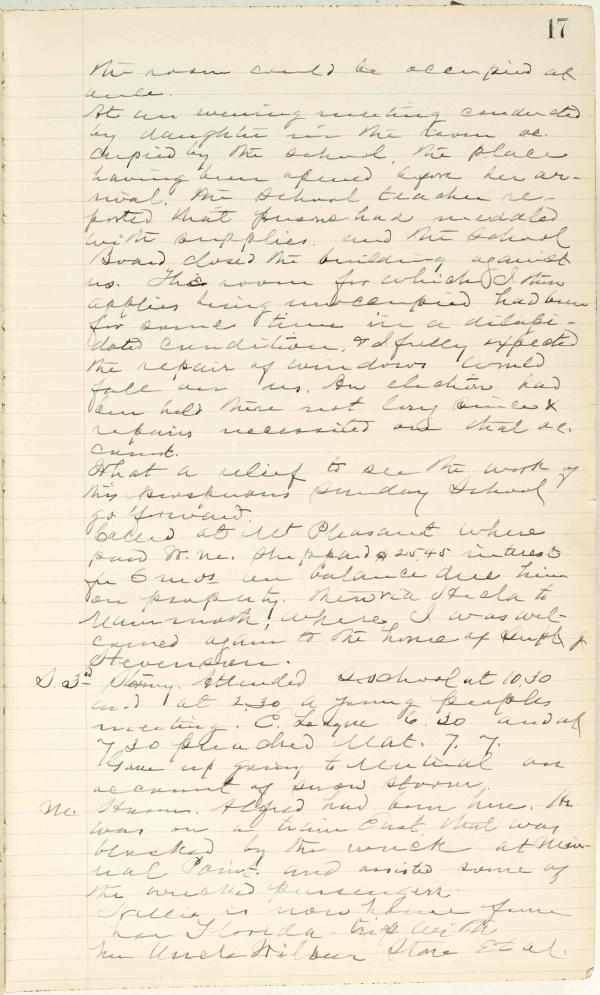 17
the room could be occupied at
once.
At an evening meeting conducted
by daughter in the room oc-
cupied by the school, the place
having been opened before her ar-
rival. The school teacher re-
ported that persons had meddled
with supplies, and the School
Board closed the building against
us. The room for which I then
applies being unoccupied had been
for some time in a dilapi-
dated condition, & I fully expected
the repair of windows would
fall on us. An election had
been held there not long since &
repairs necessited on that ac-
count.
What a relief to see the work of
this prosperous Sunday School
go forward.
Called at Mt Pleasant where
paid W. M. Sheppard $25.45 interest
for 6 mos on balance due him
on property. Then via Hecla to
Mammoth, where I was wel-
comed again to the home of Supt J
Stevenson.
S. 3d Stormy. Attended S. School at 10.30
and at 2.30 a young peoples
meeting. C. League 6.30 and at
7 30 preached Mat. 7. 7.
Gave up going to Mutual on
account of snow storm.
M. Home. Alfred had been here. He
was on a train East that was
blocked by the wreck at Min-
eral Point, and assisted some of
the wrecked passengers.
Nallie is now home from
her Florida trip with
her Uncle Wilbur Store Et al.